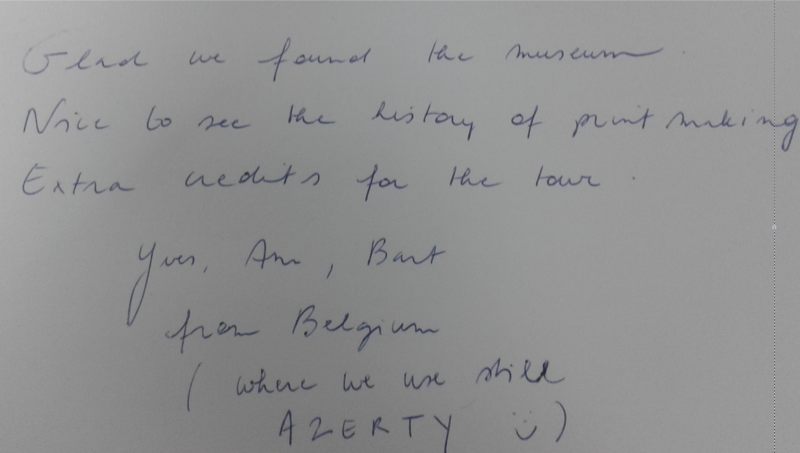 Glad we found the museum.
Nice to see the history of print making
Extra credits for the tour.
Yves, An, Bart
from Belgium
(where we use still
AZERTY :))